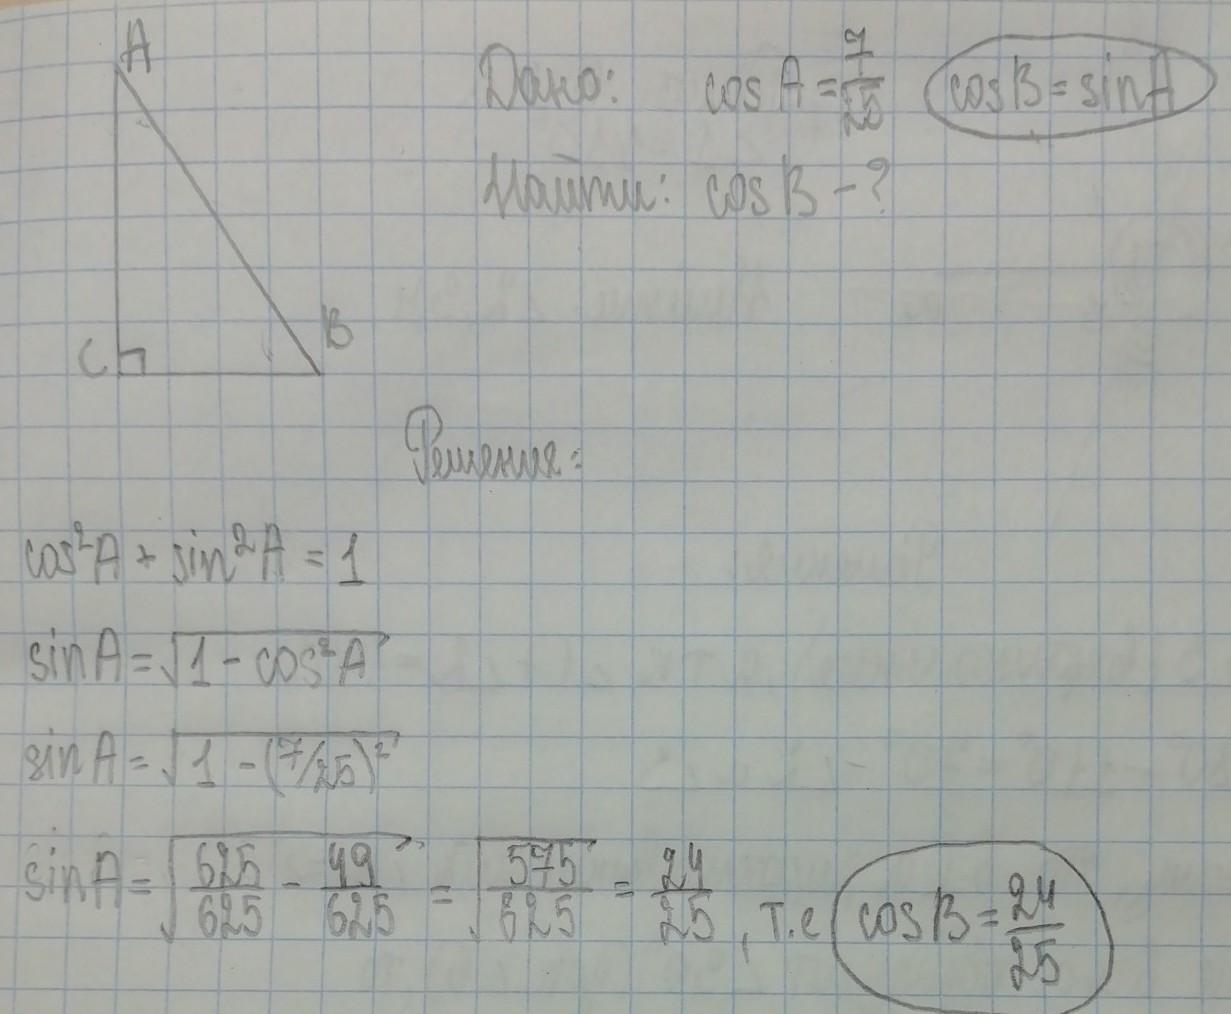 A
Дано: cos A = 7/25 cos B = sin A
Найти: cos B - ?
C B
Решение:
cos²A + sin²A = 1
sin A = √(1 - cos²A)
sin A = √(1 - (7/25)²)
sin A = √(625/625 - 49/625) = √(575/625) = 24/25, т.е cos B = 24/25